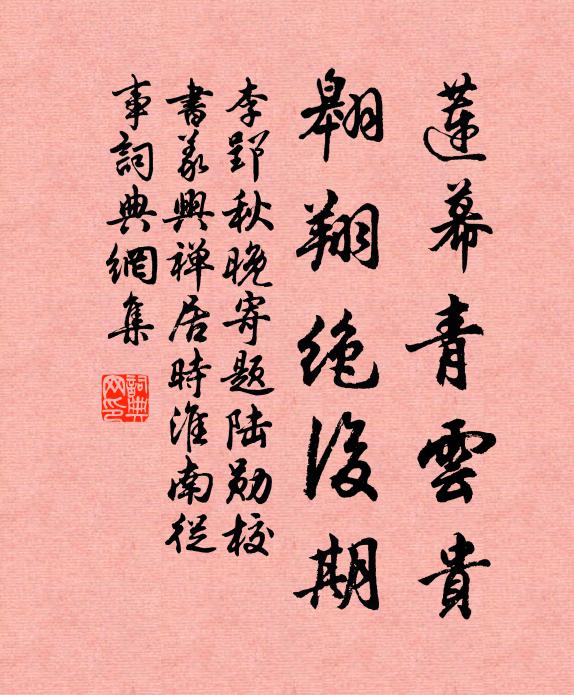 蓮幕青雲貴
翱翔絶後期
李郢秋晚寄題陸勛校
書義興禅居時淮南従
事詞典網集
詞典網印